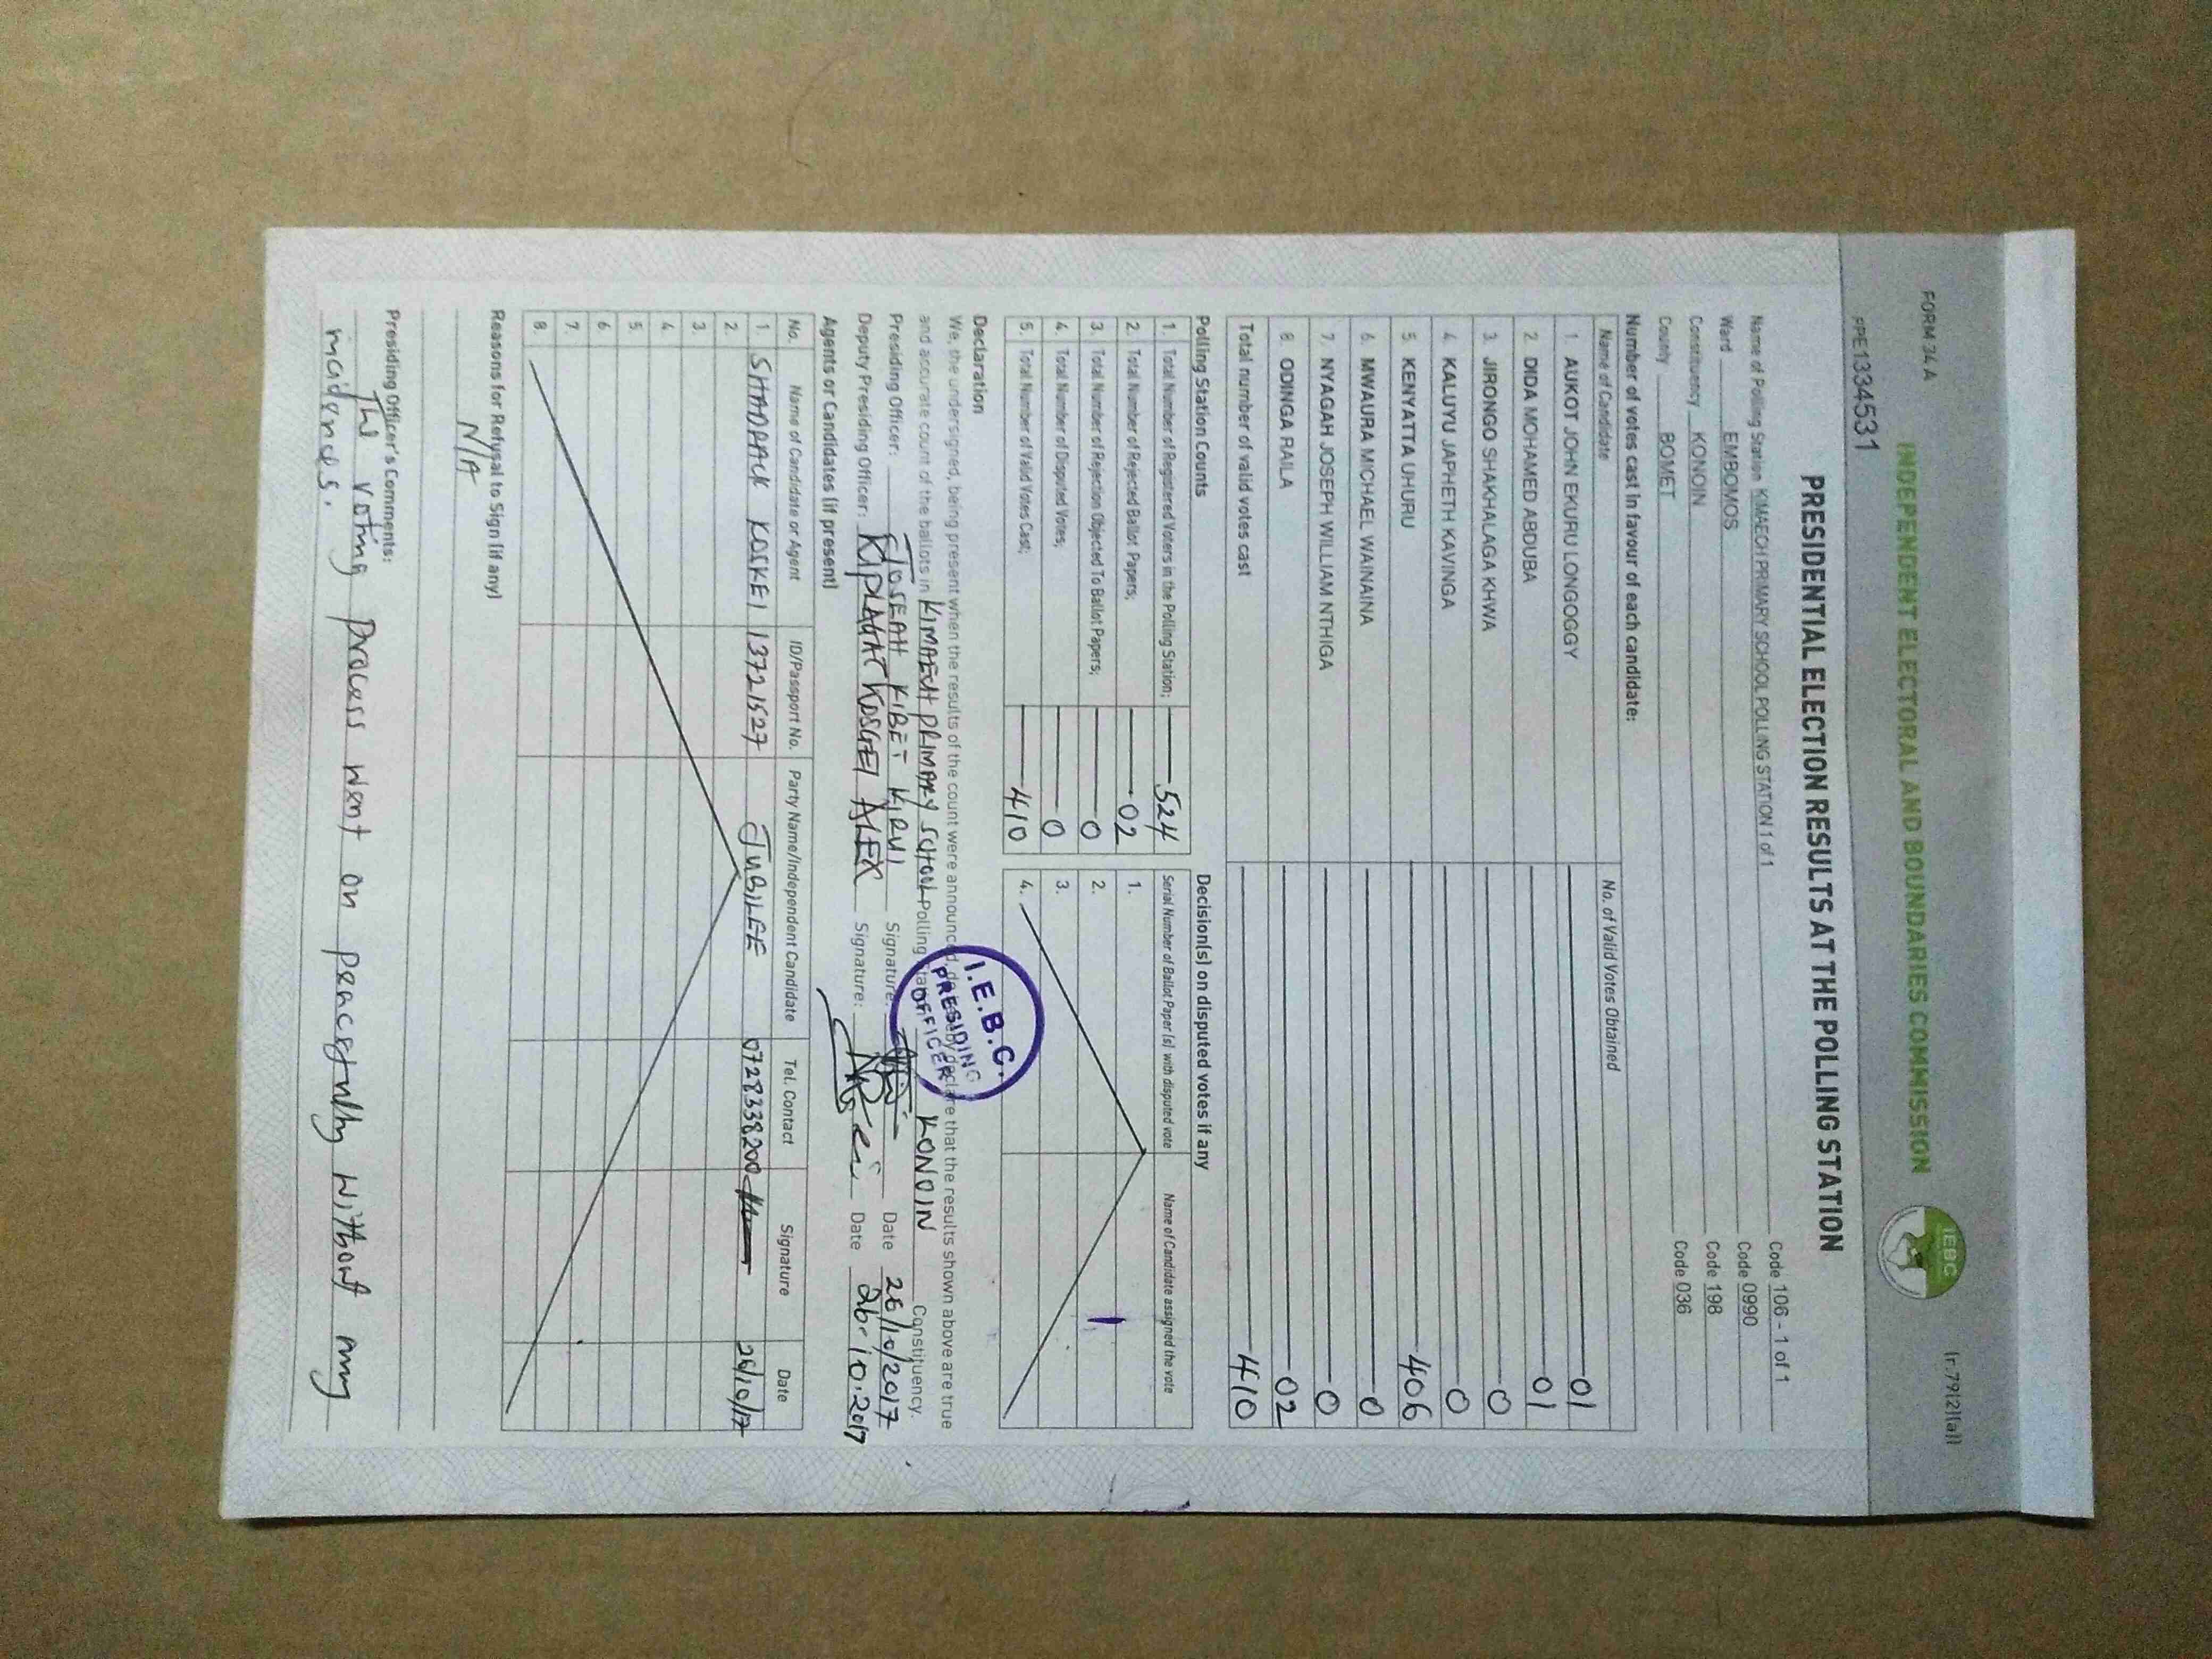 FORM 34 A
(r.79(2)(a))
INDEPENDENT ELECTORAL AND BOUNDARIES COMMISSION
IEBC
PPE1334531
PRESIDENTIAL ELECTION RESULTS AT THE POLLING STATION
Name of Polling Station KIMAECH PRIMARY SCHOOL POLLING STATION 1 of 1 Code 106 - 1 of 1
Ward EMBOMOS Code 0990
Constituency KONOIN Code 198
County BOMET Code 036
Number of votes cast in favour of each candidate:
Name of Candidate No. of Valid Votes Obtained
1. AUKOT JOHN EKURU LONGOGGY 01
2. DIDA MOHAMED ABDUBA 01
3. JIRONGO SHAKHALAGA KHWA 0
4. KALUYU JAPHETH KAVINGA 0
5. KENYATTA UHURU 406
6. MWAURA MICHAEL WAINAINA 0
7. NYAGAH JOSEPH WILLIAM NTHIGA 0
8. ODINGA RAILA 02
Total number of valid votes cast 410
Polling Station Counts Decision(s) on disputed votes if any
1. Total Number of Registered Voters in the Polling Station; 524 Serial Number of Ballot Paper (s) with disputed vote Name of Candidate assigned the vote
2. Total Number of Rejected Ballot Papers; 02 1.
3. Total Number of Rejection Objected To Ballot Papers; 0 2.
4. Total Number of Disputed Votes; 0 3.
5. Total Number of Valid Votes Cast; 410 4.
Declaration
We, the undersigned, being present when the results of the count were announced, do hereby declare that the results shown above are true
and accurate count of the ballots in KIMAECH PRIMARY SCHOOL Polling Station KONOIN Constituency.
Presiding Officer: JOSEAH KIBET KIRUI Signature: Date 26/10/2017
Deputy Presiding Officer: KIPLAGAT KOSGEI ALEX Signature: Date 26.10.2017
I.E.B.C.
PRESIDING
OFFICER
Agents or Candidates (if present)
No. Name of Candidate or Agent ID/Passport No. Party Name/Independent Candidate Tel. Contact Signature Date
1. SHADRACK KOSKEI 13721527 JUBILEE 0728338200 26/10/17
2.
3.
4.
5.
6.
7.
8.
Reasons for Refusal to Sign (if any)
N/A
Presiding Officer's Comments:
The voting process went on peacefully without any
incidences.